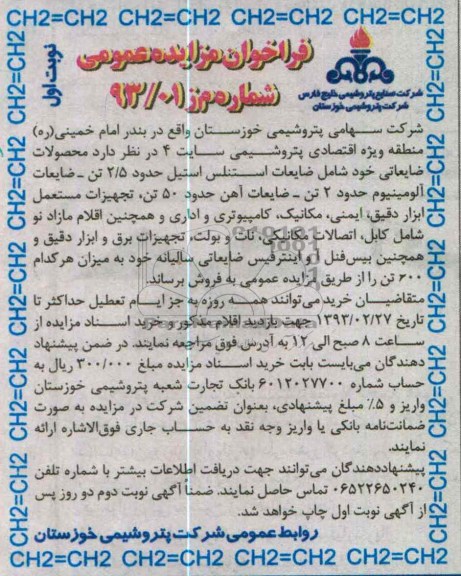 CH2=CH2 CH2=CH2 CH2=CH2 CH2=CH2
نوبت اول
فراخوان مزایده عمومی
شماره م‌ز ۹۳/۰۱
شرکت صنایع پتروشیمی خلیج فارس
شرکت پتروشیمی خوزستان
شرکت سهامی پتروشیمی خوزستان واقع در بندر امام خمینی(ره)
منطقه ویژه اقتصادی پتروشیمی سایت ۴ در نظر دارد محصولات
ضایعاتی خود شامل ضایعات استنلس استیل حدود ۲/۵ تن ـ ضایعات
آلومینیوم حدود ۲ تن ـ ضایعات آهن حدود ۵۰ تن، تجهیزات مستعمل
ابزار دقیق، ایمنی، مکانیک، کامپیوتری و اداری و همچنین اقلام مازاد نو
شامل کابل، اتصالات مکانیکی، نات و بولت، تجهیزات برق و ابزار دقیق و
همچنین بیس‌فنل آ و اینترفیس ضایعاتی سالیانه خود به میزان هر کدام
۶۰۰ تن را از طریق مزایده عمومی به فروش برساند.
متقاضیان خرید می‌توانند همه روزه به جز ایام تعطیل حداکثر تا
تاریخ ۱۳۹۳/۰۲/۲۷ جهت بازدید اقلام مذکور و خرید اسناد مزایده از
ساعت ۸ صبح الی ۱۲ به آدرس فوق مراجعه نمایند. در ضمن پیشنهاد
دهندگان می‌بایست بابت خرید اسناد مزایده مبلغ ۳۰۰/۰۰۰ ریال به
حساب شماره ۶۰۱۲۰۲۷۷۰۰ بانک تجارت شعبه پتروشیمی خوزستان
واریز و ۵٪ مبلغ پیشنهادی، بعنوان تضمین شرکت در مزایده به صورت
ضمانت‌نامه بانکی یا واریز وجه نقد به حساب جاری فوق‌الاشاره ارائه
نمایند.
پیشنهاددهندگان می‌توانند جهت دریافت اطلاعات بیشتر با شماره تلفن
۰۶۵۲۲۶۵۰۲۴۰ تماس حاصل نمایند. ضمناً آگهی نوبت دوم دو روز پس
از آگهی نوبت اول چاپ خواهد شد.
روابط عمومی شرکت پتروشیمی خوزستان
CH2=CH2 CH2=CH2 CH2=CH2 CH2=CH2